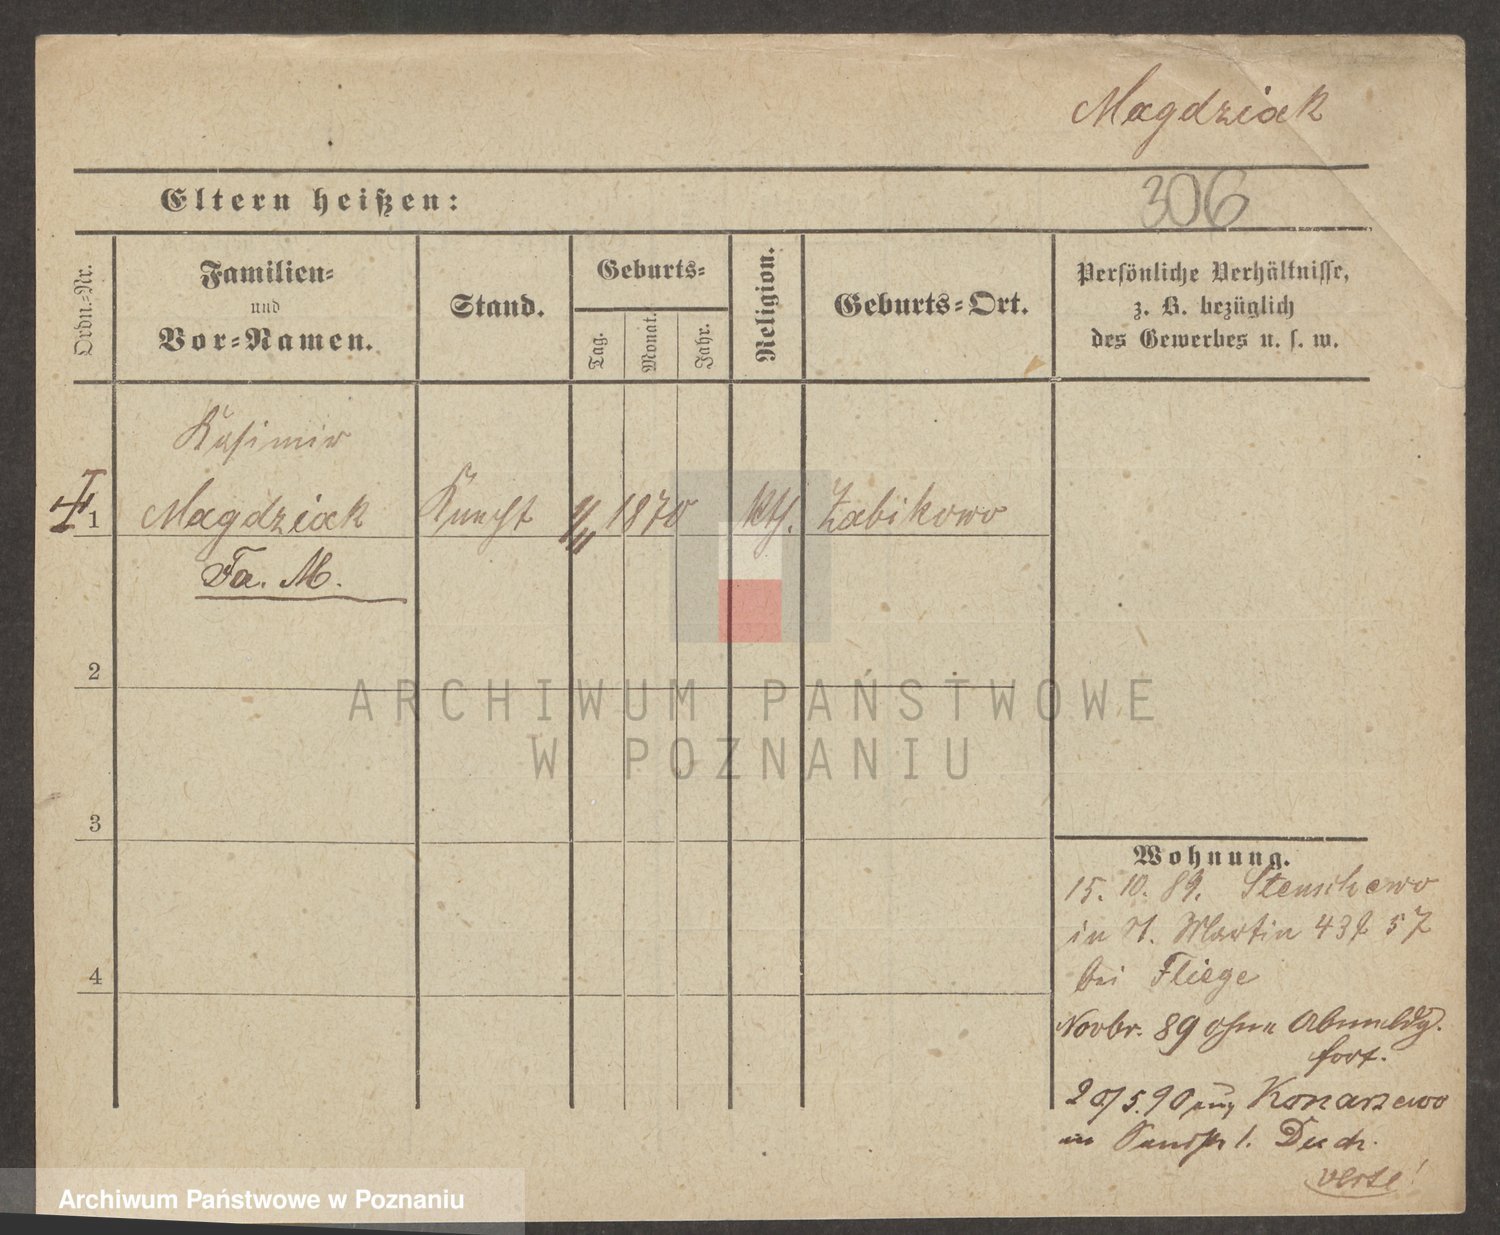 Magdziak
Eltern heißen:
306
Ordn.-Nr.
Familien-
und
Vor-Namen.
Stand.
Geburts-
Tag.
Monat.
Jahr.
Religion.
Geburts-Ort.
Persönliche Verhältnisse,
z. B. bezüglich
des Gewerbes u. s. w.
Kasimir
I
1
Magdziak
Knecht
1870
kth.
Zabikowo
Fa. M.
2
3
4
ARCHIWUM PAŃSTWOWE
W POZNANIU
Wohnung.
15. 10. 89. Stenschewo
in St. Martin 57
bei Fliege
Novbr. 89 ohne Abmeldg.
fort.
20/5.90 aus Konarzewo
1. Duch.
verte!
Archiwum Państwowe w Poznaniu